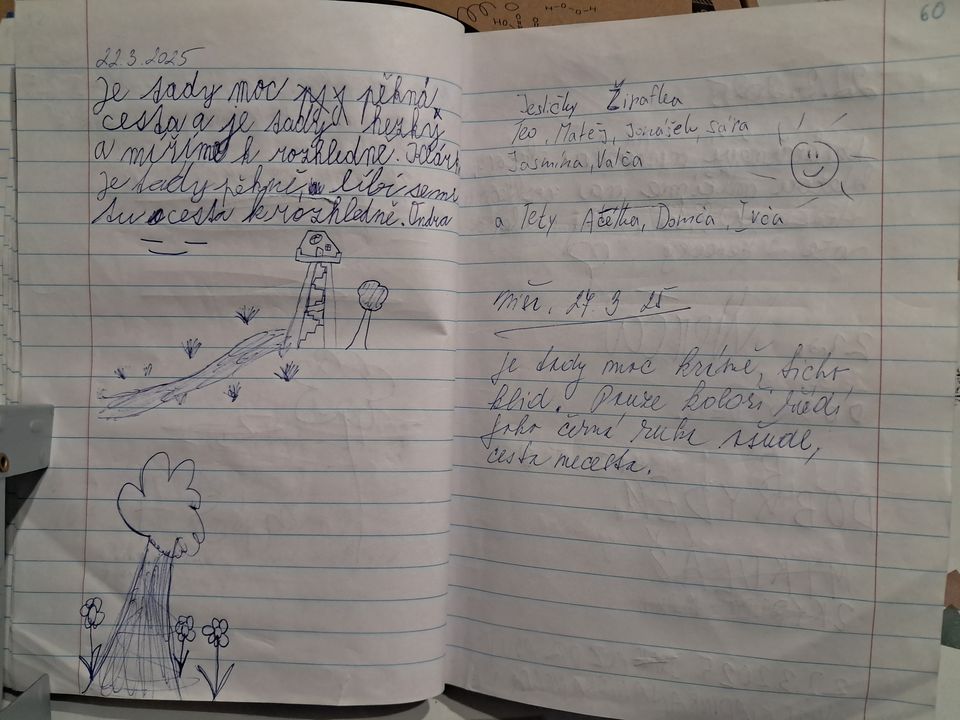 22.3.2025
Je tady moc pěkná
cesta a je tady hezky
a míříme k rozhledně.
je tady pěkně, líbí se mi
tu cesta k rozhledně. Ondra
60
Jesličky Žirafka
Teo, Matěj, Jonášek, Sára
Jasmína, Valča
a Tety Ačetka, Domča, Ivča
27. 3 25
Je tady moc krásně, ticho,
klid. Pouze koloři řádí
jako černá ruka všude,
cesta necesta.